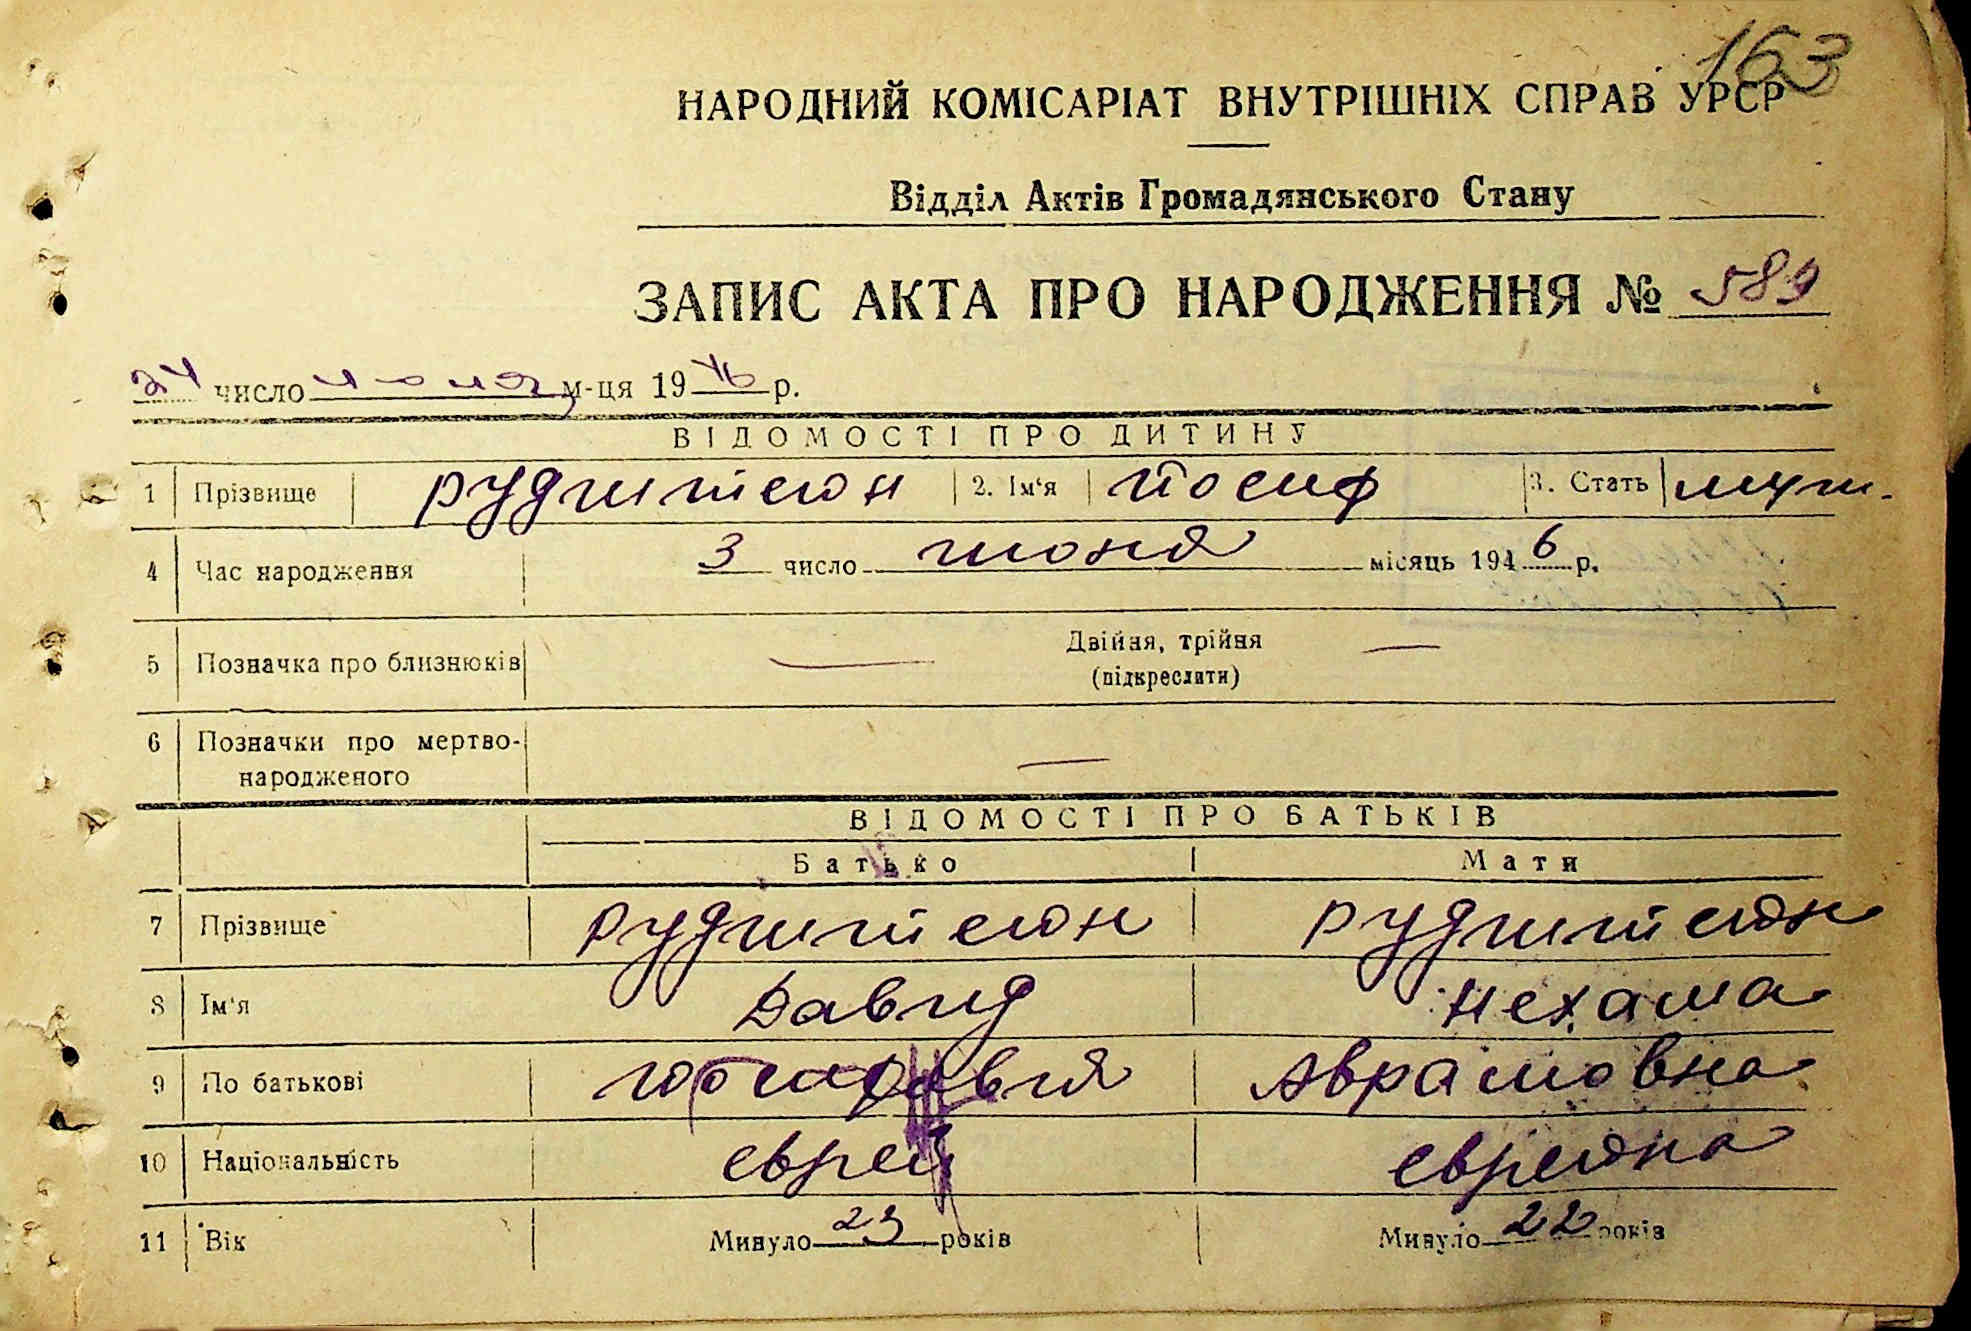 163
НАРОДНИЙ КОМІСАРІАТ ВНУТРІШНІХ СПРАВ УРСР
Відділ Актів Громадянського Стану
ЗАПИС АКТА ПРО НАРОДЖЕННЯ № 589
24 число июня м-ця 1946 р.
ВІДОМОСТІ ПРО ДИТИНУ
1 Прізвище Рудштейн 2. Ім'я Иосиф 3. Стать муж.
4 Час народження 3 число июня місяць 1946 р.
5 Позначка про близнюків — Двійня, трійня —
(підкреслити)
6 Позначки про мертво-
народженого —
ВІДОМОСТІ ПРО БАТЬКІВ
Батько Мати
7 Прізвище Рудштейн Рудштейн
8 Ім'я Давид Нехама
9 По батькові Аврамовна
10 Національність еврей еврейка
11 Вік Минуло 23 років Минуло 22 років